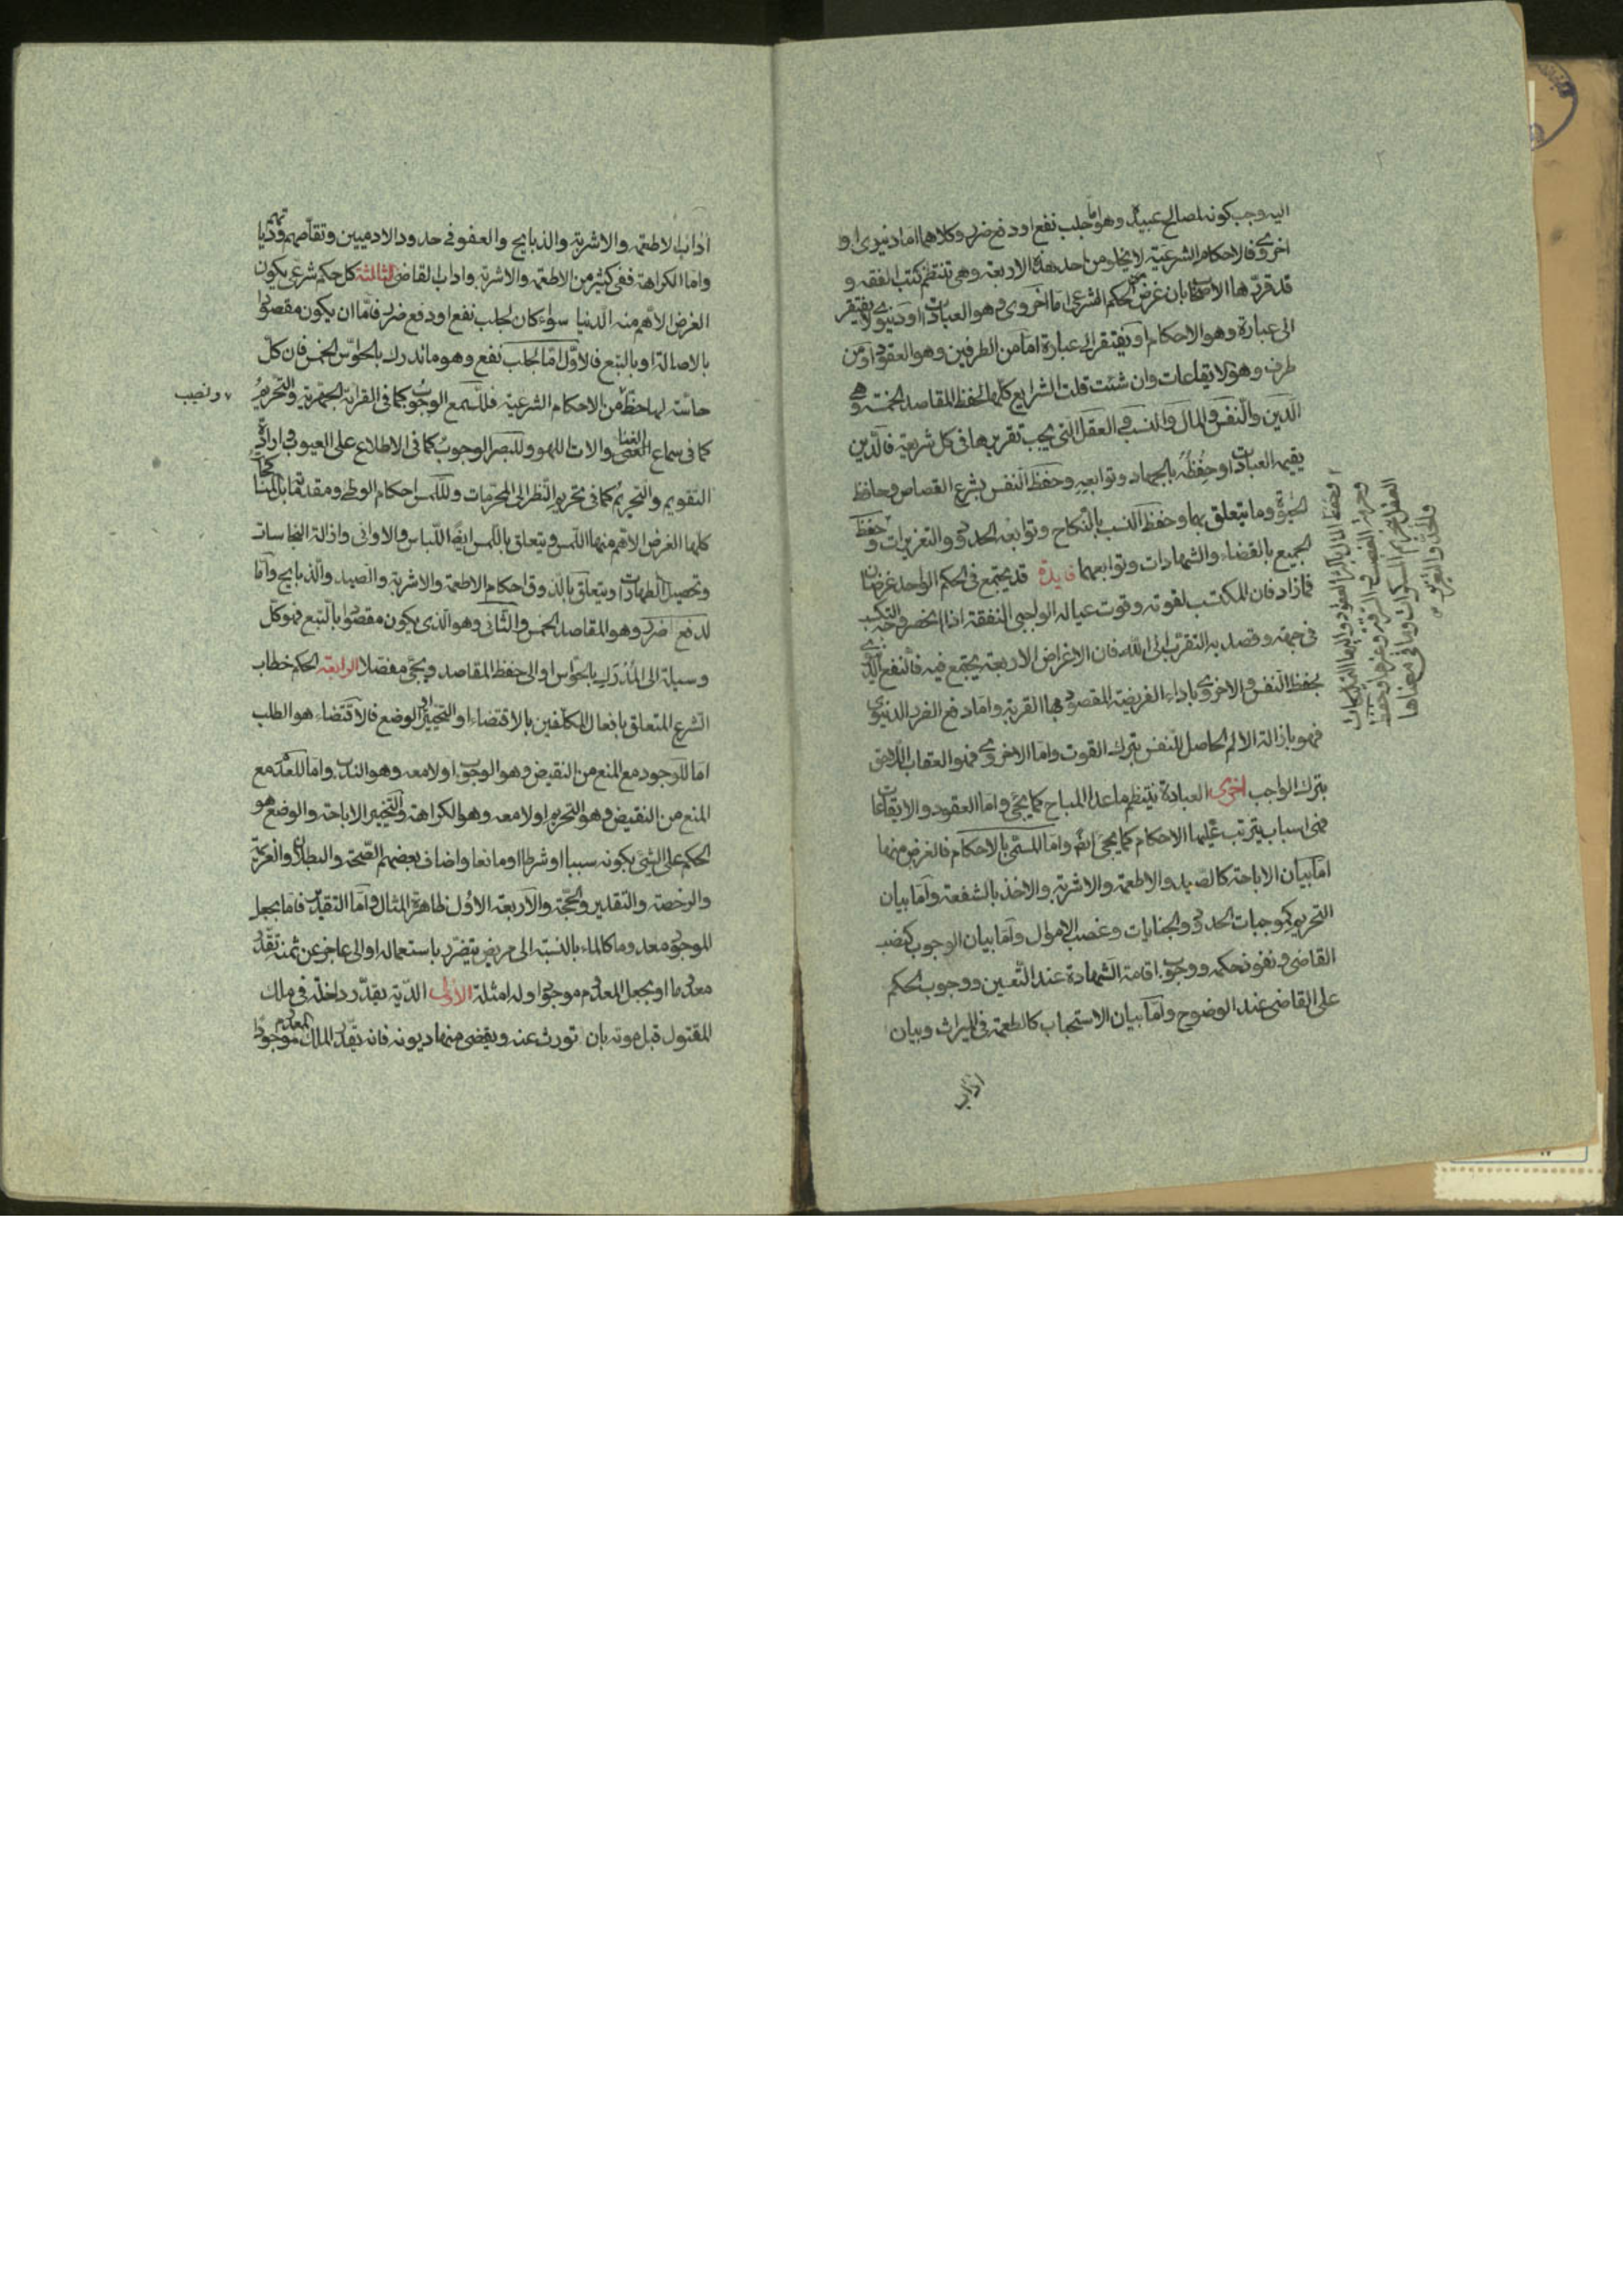 ٢
اليه وجب كونه لمصالح عبيده وهو اما جلب نفع او دفع ضرر وكلاهما اما دنيوى او
اخروى فالاحكام الشرعية لا يخلو من احد هذه الاربعة وهى تنتظم كتب الفقه و
قد قررها الاصحاب بان غرض الحكم الشرعى اما اخروى وهو العبادات او دنيوى لا يفتقر
الى عبارة وهو الاحكام او يفتقر الى عبارة اما من الطرفين وهو العقود او من
طرف وهو الايقاعات وان شئت قلت الشرايع كلها لحفظ المقاصد الخمسة وهى
الدين والنفس والمال والنسب والعقل التى يجب تقريرها فى كل شريعة فالدين
يقيمه العبادات او حفظه بالجهاد وتوابعه وحفظ النفس بشرع القصاص وحافظ
وما يتعلق بها وحفظ النسب بالنكاح وتوابعه الحدود والتعزيرات وحفظ
الجميع بالقضاء والشهادات وتوابعهما فايدة قد يجتمع فى الحكم الواحد غرضان
فما زاد فان المكتسب لقوته وقوت عياله الواجبى النفقة اذا انحصر وجه التكسب
فى جهته وقصد به التقرب الى الله فان الاغراض الاربعة يجتمع فيه فالنفع الدنيوى
بحفظ النفس والاخروى باداء الفريضة المقصود بها القربة واما دفع الضرر الدنيوى
فهو بازالة الالم الحاصل للنفس بترك القوت واما الاخروى فهو العقاب اللاحق
بترك الواجب اخرى العبادة ينتظم ما عدا المباح كما يجئ واما العقود والايقاعات
فهى اسباب يترتب عليها الاحكام كما يجئ واما المسمى بالاحكام فالغرض منها
اما بيان الاباحة كالصيد والاطعمة والاشربة والاخذ بالشفعة واما بيان
التحريم كموجبات الحدود والجنايات وغصب الاموال واما بيان الوجوب كنصب
القاضى ونفوذ حكمه ووجوب اقامة الشهادة عند التعيين ووجوب الحكم
على القاضى عند الوضوح واما بيان الاستحباب كالطعمة فى الميراث وبيان
اداب
وحفظ المال
وتحريم الغصب والسرقة وغيرها وحفظ
العقل بتحريم المسكرات وما فى معناها
والحد والتعزير
اداب الاطعمة والاشربة والذبايح والعفو فى حدود الادميين وتقاصهم
واما الكراهة ففى كثير من الاطعمة والاشربة واداب القاضى الثالثة كل حكم شرعى يكون
الغرض الاهم منه الدنيا سواء كان لجلب نفع او دفع ضرر فاما ان يكون مقصودا
بالاصالة او بالتبع فالاول اما لجلب نفع وهو ما ندرك بالحواس الخمس فان كل
حاسة لها حظ من الاحكام الشرعية فللسمع الوجوب كما فى القراءة الجهرية والتحريم
ونصيب
كما فى سماع الغنا والات اللهو وللبصر الوجوب كما فى الاطلاع على العيوب
التقويم والتحريم كما فى تحريم النظر الى المحرمات وللمس احكام الوطى ومقدماته
كلها الغرض الاهم منها اللمس ويتعلق باللمس ايضا اللباس والاوانى وازالة النجاسات
وتحصيل الطهارات ويتعلق بالذوق احكام الاطعمة والاشربة والصيد والذبايح واما
لدفع ضرر وهو المقاصد الخمس والثانى وهو الذى يكون مقصودا بالتبع فهو كل
وسيلة الى المدرك بالحواس او الى حفظ المقاصد ويجئ مفصلا الرابعة الحكم خطاب
الشرع المتعلق بافعال المكلفين بالاقتضاء او التخيير او الوضع فالاقتضاء هو الطلب
اما للوجود مع المنع من النقيض وهو الوجوب او لا معه وهو الندب واما للعدم مع
المنع من النقيض وهو التحريم او لا معه وهو الكراهة والتخيير الاباحة والوضع هو
الحكم على الشئ بكونه سببا او شرطا او مانعا واضاف بعضهم الصحة والبطلان والعزيمة
والرخصة والتقدير والحجة والاربعة الاول ظاهرة المثال واما التقدير فاما بجعل
الموجود معدوما كالماء بالنسبة الى مريض يتضرر باستعماله او الى عاجز عن ثمنه تقدر
معدوما او بجعل المعدوم موجودا وله امثلة الاول الدية يقدر داخلة فى ملك
المقتول قبل موته بان تورث عنه ويقضى منها ديونه فانه تقدر الملك المعدوم موجودا